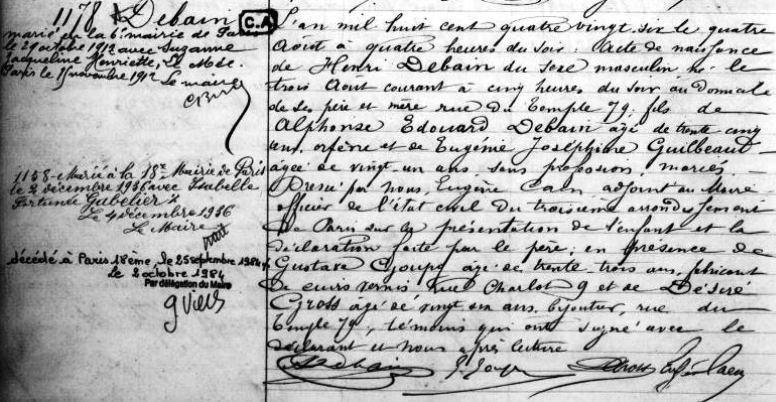 1178 Debain
marié en la 6e mairie de Paris
le 29 octobre 1912 avec Suzanne
Jacqueline Henriette
Paris le 11 novembre 1912
Le maire
1158 - Marié à la 18e Mairie de Paris
le 2 décembre 1936 avec Isabelle
Fortunée Gabelier
Le 4 décembre 1936
Le Maire
décédé à Paris 18ème, le 25 septembre 1984
le 2 octobre 1984
Par délégation du Maire
C.A
L'an mil huit cent quatre vingt six le quatre
Août à quatre heures du soir : Acte de naissance
de Henri Debain du sexe masculin né le
trois Août courant à cinq heures du soir au domicile
de ses père et mère rue du Temple 79, fils de
Alphonse Edouard Debain âgé de trente cinq
ans, orfèvre et de Eugénie Joséphine Guilbeaud
agée de vingt un ans sans profession, mariés
Dressé par nous, Eugène Caen adjoint au Maire
officier de l'état civil du troisième arrondissement
de Paris sur la présentation de l'enfant et la
déclaration faite par le père ; en présence de
Gustave âgé de trente trois ans, fabricant
de cuirs vernis rue Charlot 9 et de Désiré
Gross âgé de vingt six ans, bijoutier, rue du
Temple 79, témoins qui ont signé avec le
déclarant et nous après lecture
Debain Gross Eug. Caen